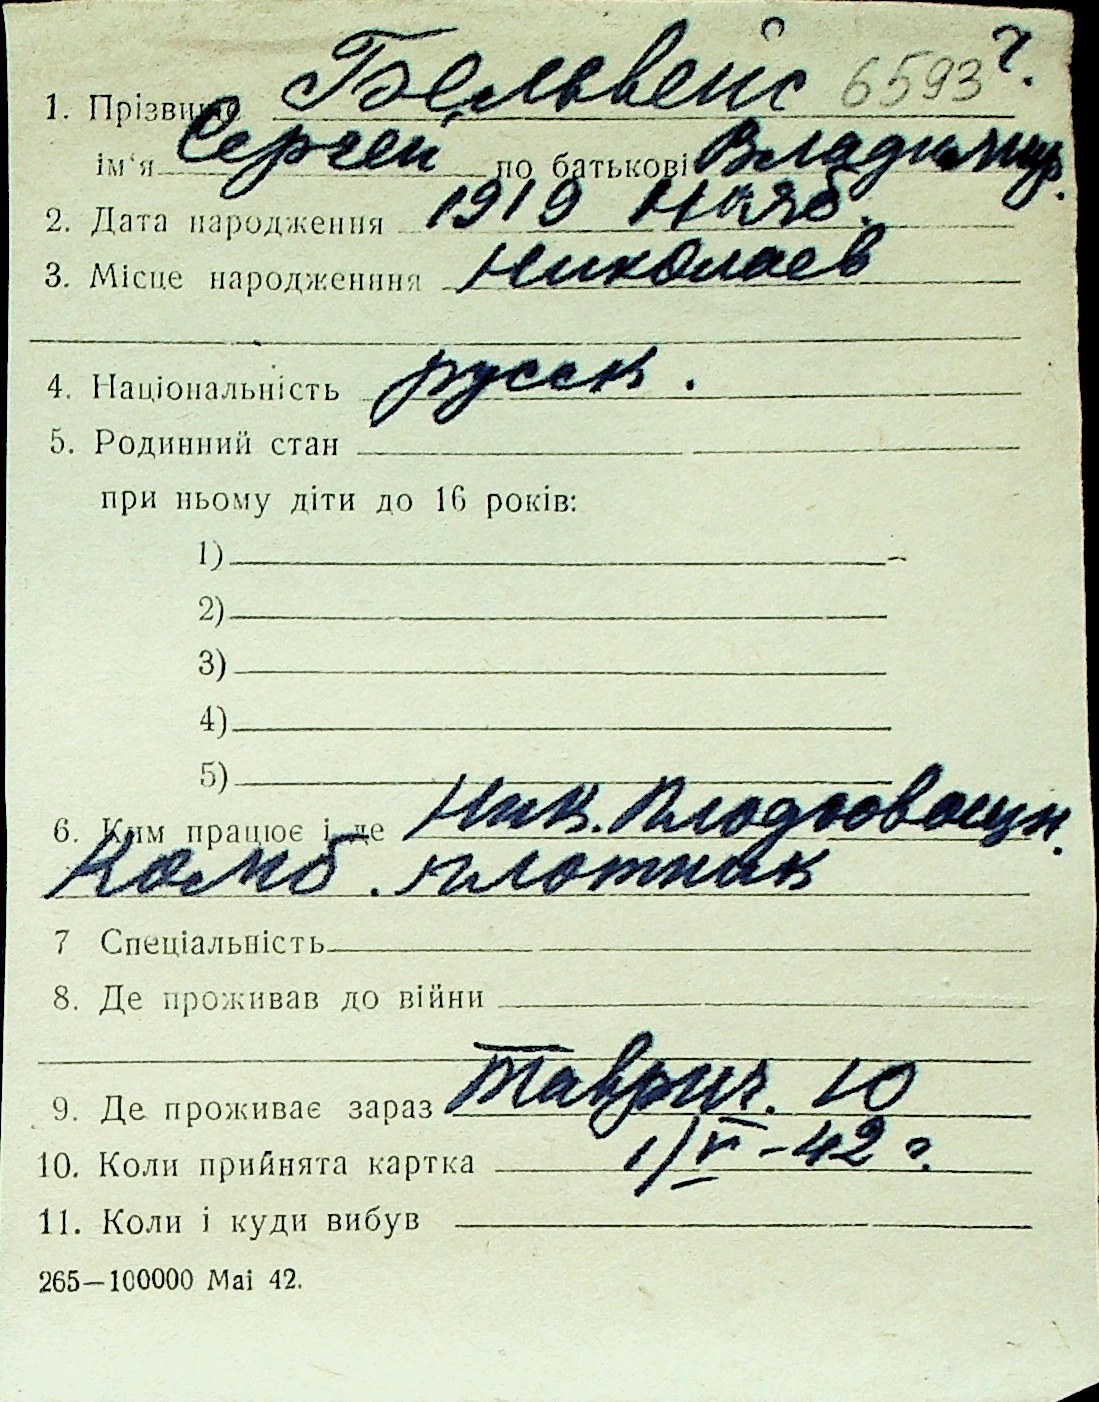 1. Прізвище Бельвейс 6593 ч.
ім'я Сергей по батькові Владимир.
2. Дата народження 1919 Нояб.
3. Місце народженння Николаев
4. Національність русск.
5. Родинний стан
при ньому діти до 16 років:
1)
2)
3)
4)
5)
6. Ким працює і де Ник. Плодоовощн.
Комб. плотник
7 Спеціальність
8. Де проживав до війни
9. Де проживає зараз Таврич. 10
10. Коли прийнята картка 1/V-42 г.
11. Коли і куди вибув
265—100000 Mai 42.